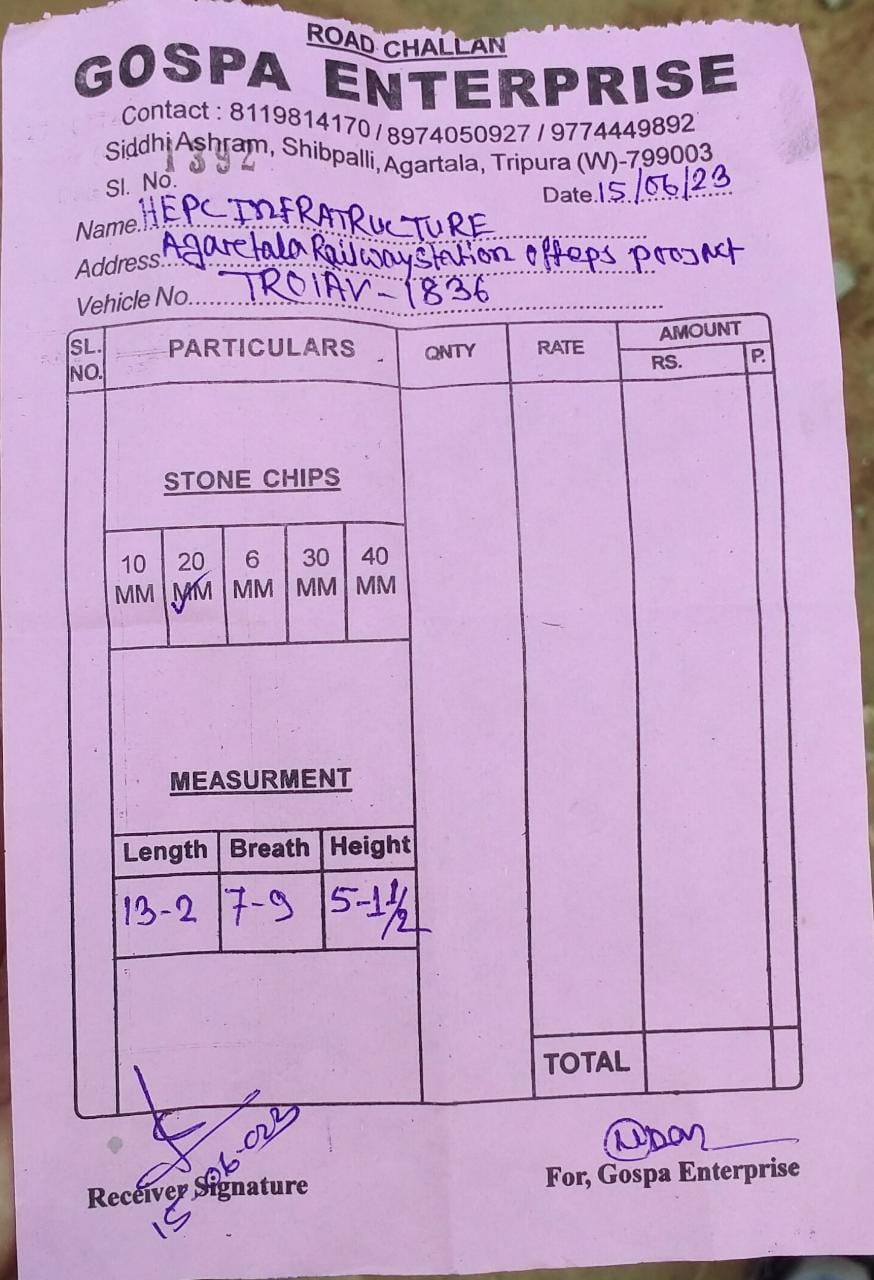 ROAD CHALLAN
GOSPA ENTERPRISE
Contact : 8119814170 / 8974050927 / 9774449892
Siddhi Ashram, Shibpalli, Agartala, Tripura (W)-799003
Sl. No. 1392 Date. 15/06/23
Name. HEPC INFRATRUCTURE
Address. Agaretala Railway station project
Vehicle No. TR01AV-1836
SL. NO. PARTICULARS QNTY RATE AMOUNT
RS. P.
STONE CHIPS
10 MM 20 MM 6 MM 30 MM 40 MM
MEASURMENT
Length Breath Height
13-2 7-9 5-1 1/2
TOTAL
15-06-023
Receiver Signature
For, Gospa Enterprise